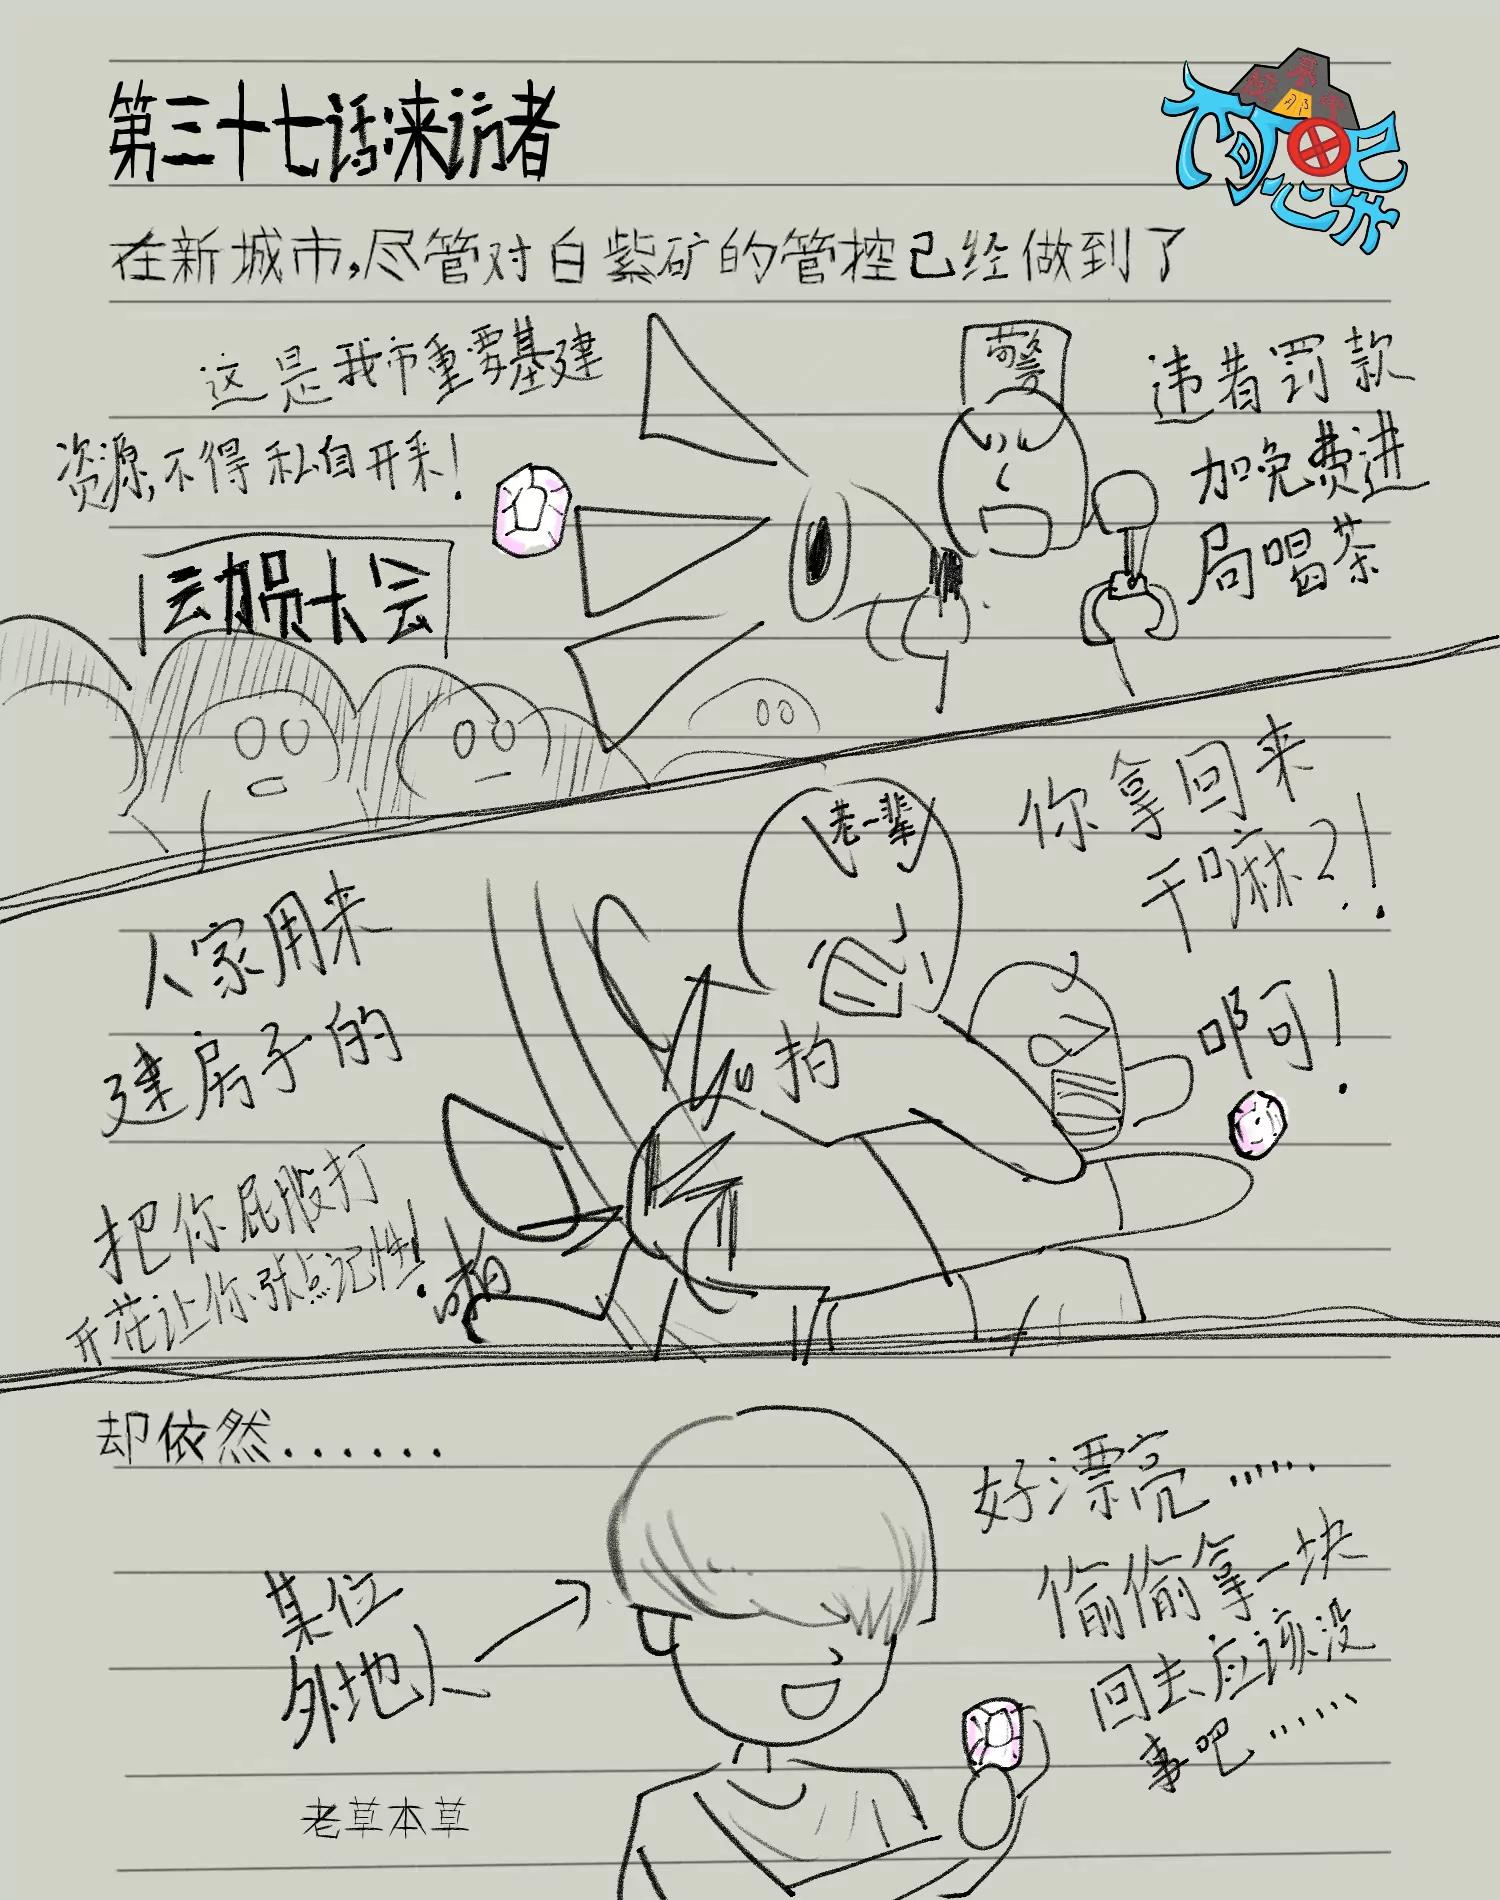 第三十七话来访者
在新城市,尽管对白紫矿的管控已经做到了
这是我市重要基建
资源,不得私自开采!
警
违者罚款
加免费进
局喝茶
大会
老一辈
你拿回来
干嘛?!
人家用来
建房子的
拍
啊!
把你屁股打
开花让你张点记性!
啪
却依然......
好漂亮......
偷偷拿一块
回去应该没
事吧......
某位
外地人
老草本草